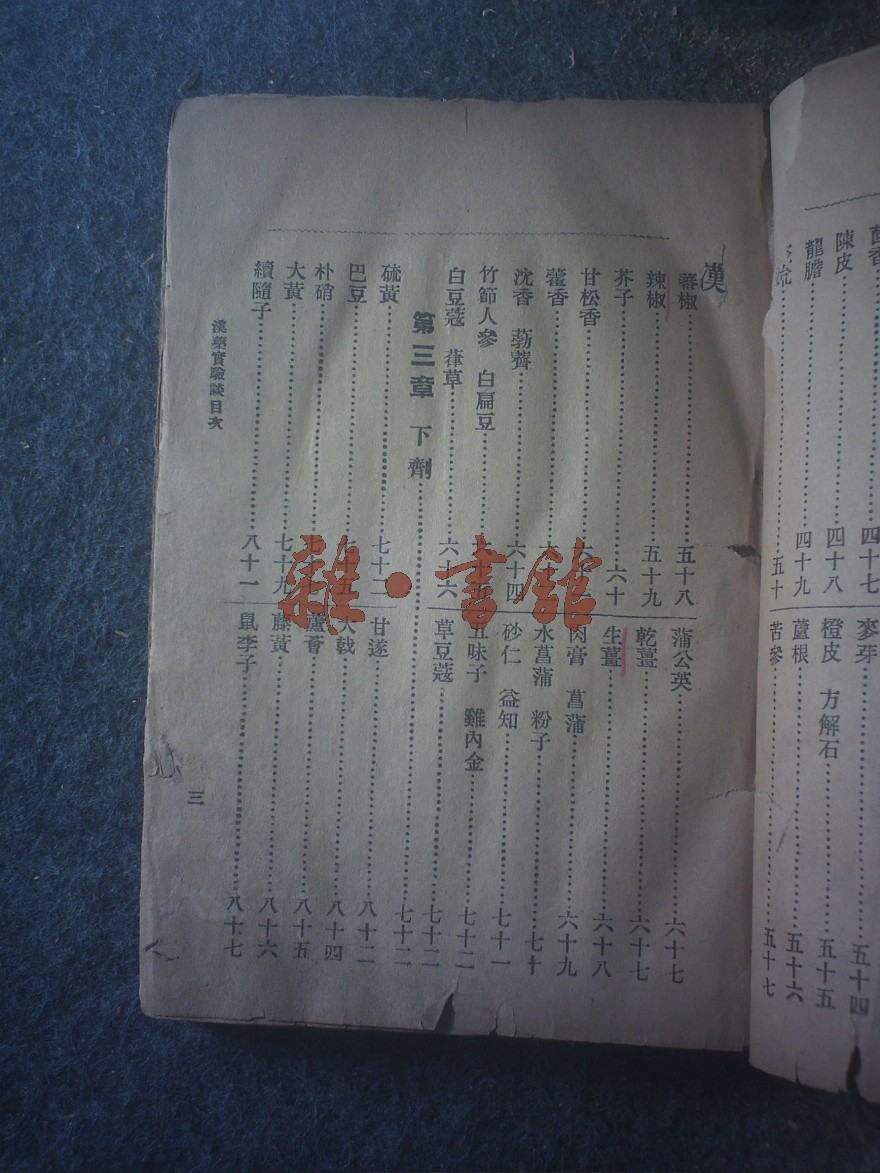 香 四十七
陳皮 四十八
龍膽 四十九
五十
麥芽 五十四
橙皮 方解石 五十五
蘆根 五十六
苦參 五十七
漢
蕃椒 五十八
辣椒 五十九
芥子 六十
甘松香
藿香
沈香 葧薺 六十四
竹節人參 白扁豆
白豆蔻 葎草 六十六
蒲公英 六十七
乾薑 六十七
生薑 六十八
肉膏 菖蒲 六十九
水菖蒲 粉子 七十
砂仁 益知 七十一
五味子 雞內金 七十二
草豆蔻 七十二
第三章 下劑 七十二
硫黃 七十二
巴豆 七十五
朴硝
大黃 七十九
續隨子 八十一
甘遂 八十二
大戟 八十四
蘆薈 八十五
藤黃 八十六
鼠李子 八十七
漢藥實驗談目次
三
雜·書館